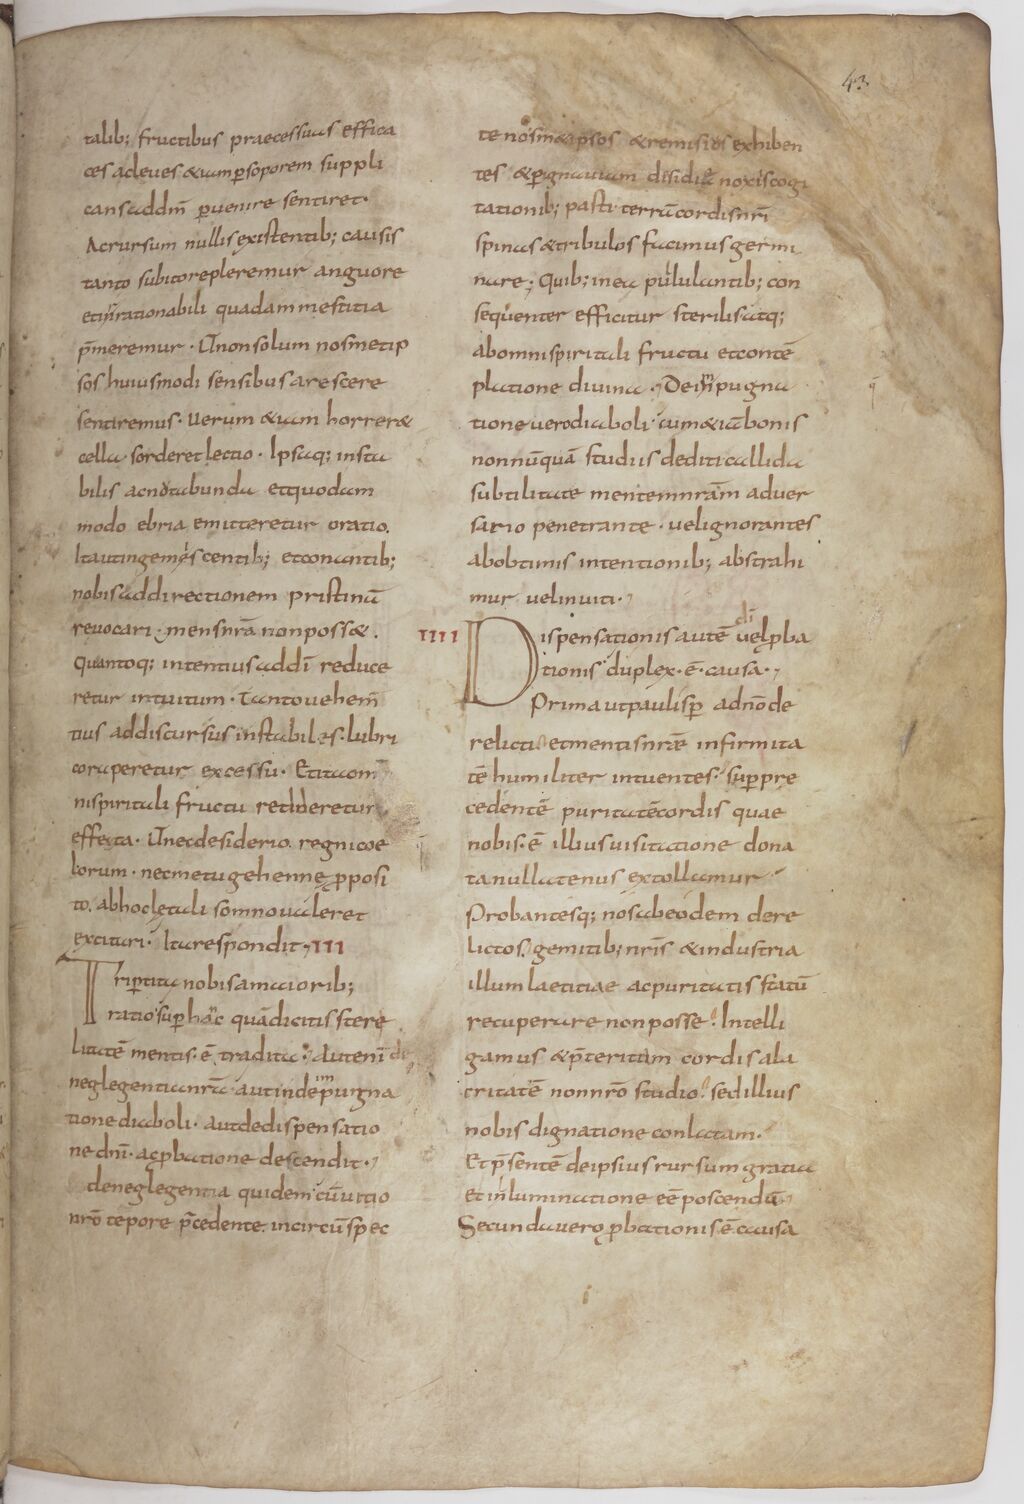 43
talib; fructibus praecessuus effica
ces ac leues &iam psoporem suppli
cans addm̄ puenire sentiret·
Ac rursum nullis existentib; causis
tanto subito repleremur anguore
et inrationabili quadam mestitia
p̄meremur· Ut non solum nosmetip
sos huiusmodi sensibus arescere
sentiremus· Uerum &iam horrer&
cella· sorderet lectio· Ipsaq; insta
bilis ac nutabunda et quodam
modo ebria emitteretur oratio.
Ita ut ingemescentib; et conantib;
nobis ad directionem pristinā
reuocari· mens nrā non poss&.
Quantoq; intentius addī reduce
retur intuitum· Tanto uehem̄
tius addiscursus instabiles· lubri
co raperetur excessu· Et ita om
ni spiritali fructu redderetur
effecta· Ut nec desiderio regni coe
lorum· nec metu gehenne pposi
to. ab hoc letali somno ualeret
excitari· Ita respondit· III
Tripertita nobis a maiorib;
ratio sup hac quā dicitis stere
litatē mentis· ē tradita· Aut enī de
neglegentia nrā· aut inde inpugna
tione diaboli· aut de dispensatio
ne dnī· ac pbatione descendit·
de neglegentia quidem cū uitio
nrō tēpore p̄cedente· incircūspec
te nosm& ipsos &remisius exhiben
tes &p ignauiam &desidiā noxiis cogi
tationib; pasti terrā cordis nrī
spinas &tribulos facimus germi
nare; Quib; in ea pullulantib; con
sequenter efficitur sterilis atq;
ab omni spiritali fructu et contē
platione diuina· De inpugna
tione uero diaboli· cum &iā bonis
nonnūquā studiis dediti callida
subtilitate mentem nrām aduer
sario penetrante· uel ignorantes
ab obtimis intentionib; abstrahi
mur uel inuiti·
IIII Dispensationis autē di uel pba
tionis duplex· ē· causa·
Prima ut paulisp ad nō de
relicti et mentis nrae infirmita
tē humiliter intuentes· sup pre
cedentē puritatē cordis quae
nobis· ē illius uisitatione dona
ta nullatenus extollamur·
Probantesq; nos ab eodem dere
lictos. gemitib; nrīs &industria
illum laetitiae ac puritatis statū
recuperare non posse! Intelli
gamus &p̄teritam cordis ala
critatē non nrō studio! sed illius
nobis dignatione conlatam·
Et p̄sentē de ipsius rursum gratia
et inluminatione eē poscendā·
Secunda uero pbationis ē causa